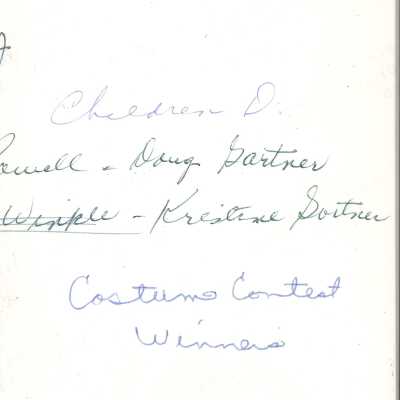 Children D.
Powell - Doug Gartner
Winkle - Kristine Gortner
Costume Contest
Winners